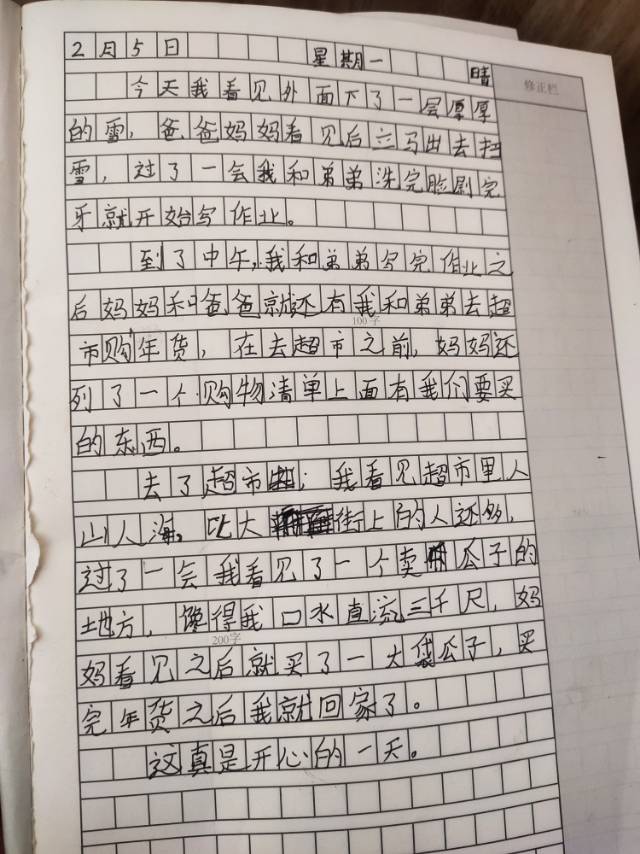 2月5日 星期一 晴
修正栏
今天我看见外面下了一层厚厚
的雪，爸爸妈妈看见后立马出去扫
雪，过了一会我和弟弟洗完脸刷完
牙就开始写作业。
到了中午，我和弟弟写完作业之
后妈妈和爸爸就还有我和弟弟去超
100字
市购年货，在去超市之前，妈妈还
列了一个购物清单上面有我们要买
的东西。
去了超市，我看见超市里人
山人海，比大街上的人还多，
过了一会我看见了一个卖瓜子的
地方，馋得我口水直流三千尺，妈
200字
妈看见之后就买了一大袋瓜子，买
完年货之后我就回家了。
这真是开心的一天。